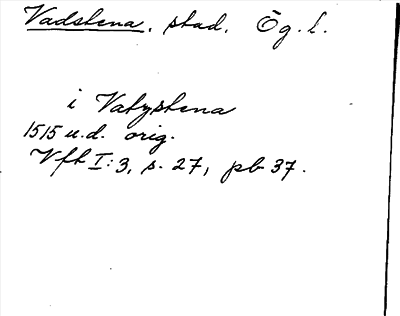 Vadstena, stad. Ög. l.
i Vatzstena
1515 u.d. orig.
Vfh I:3, s. 27, pb 37.